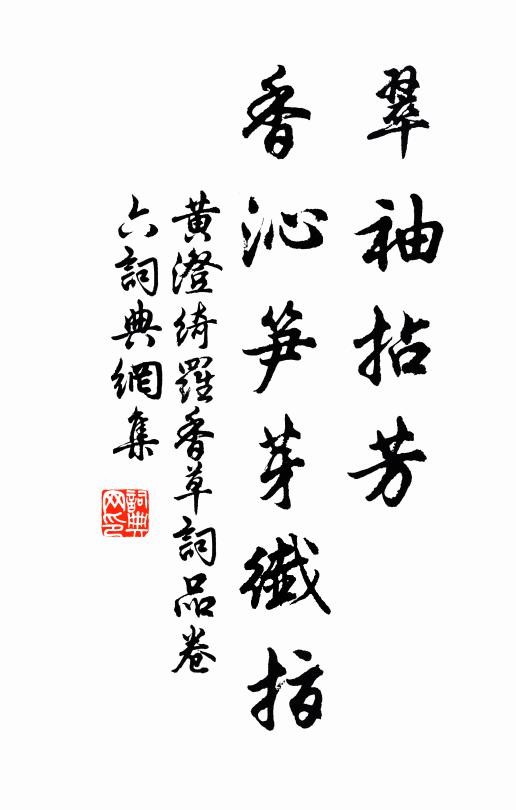 翠袖拈芳
香沁笋芽纖指
黄澄綺羅香草詞品卷
六詞典網集
詞典
网印